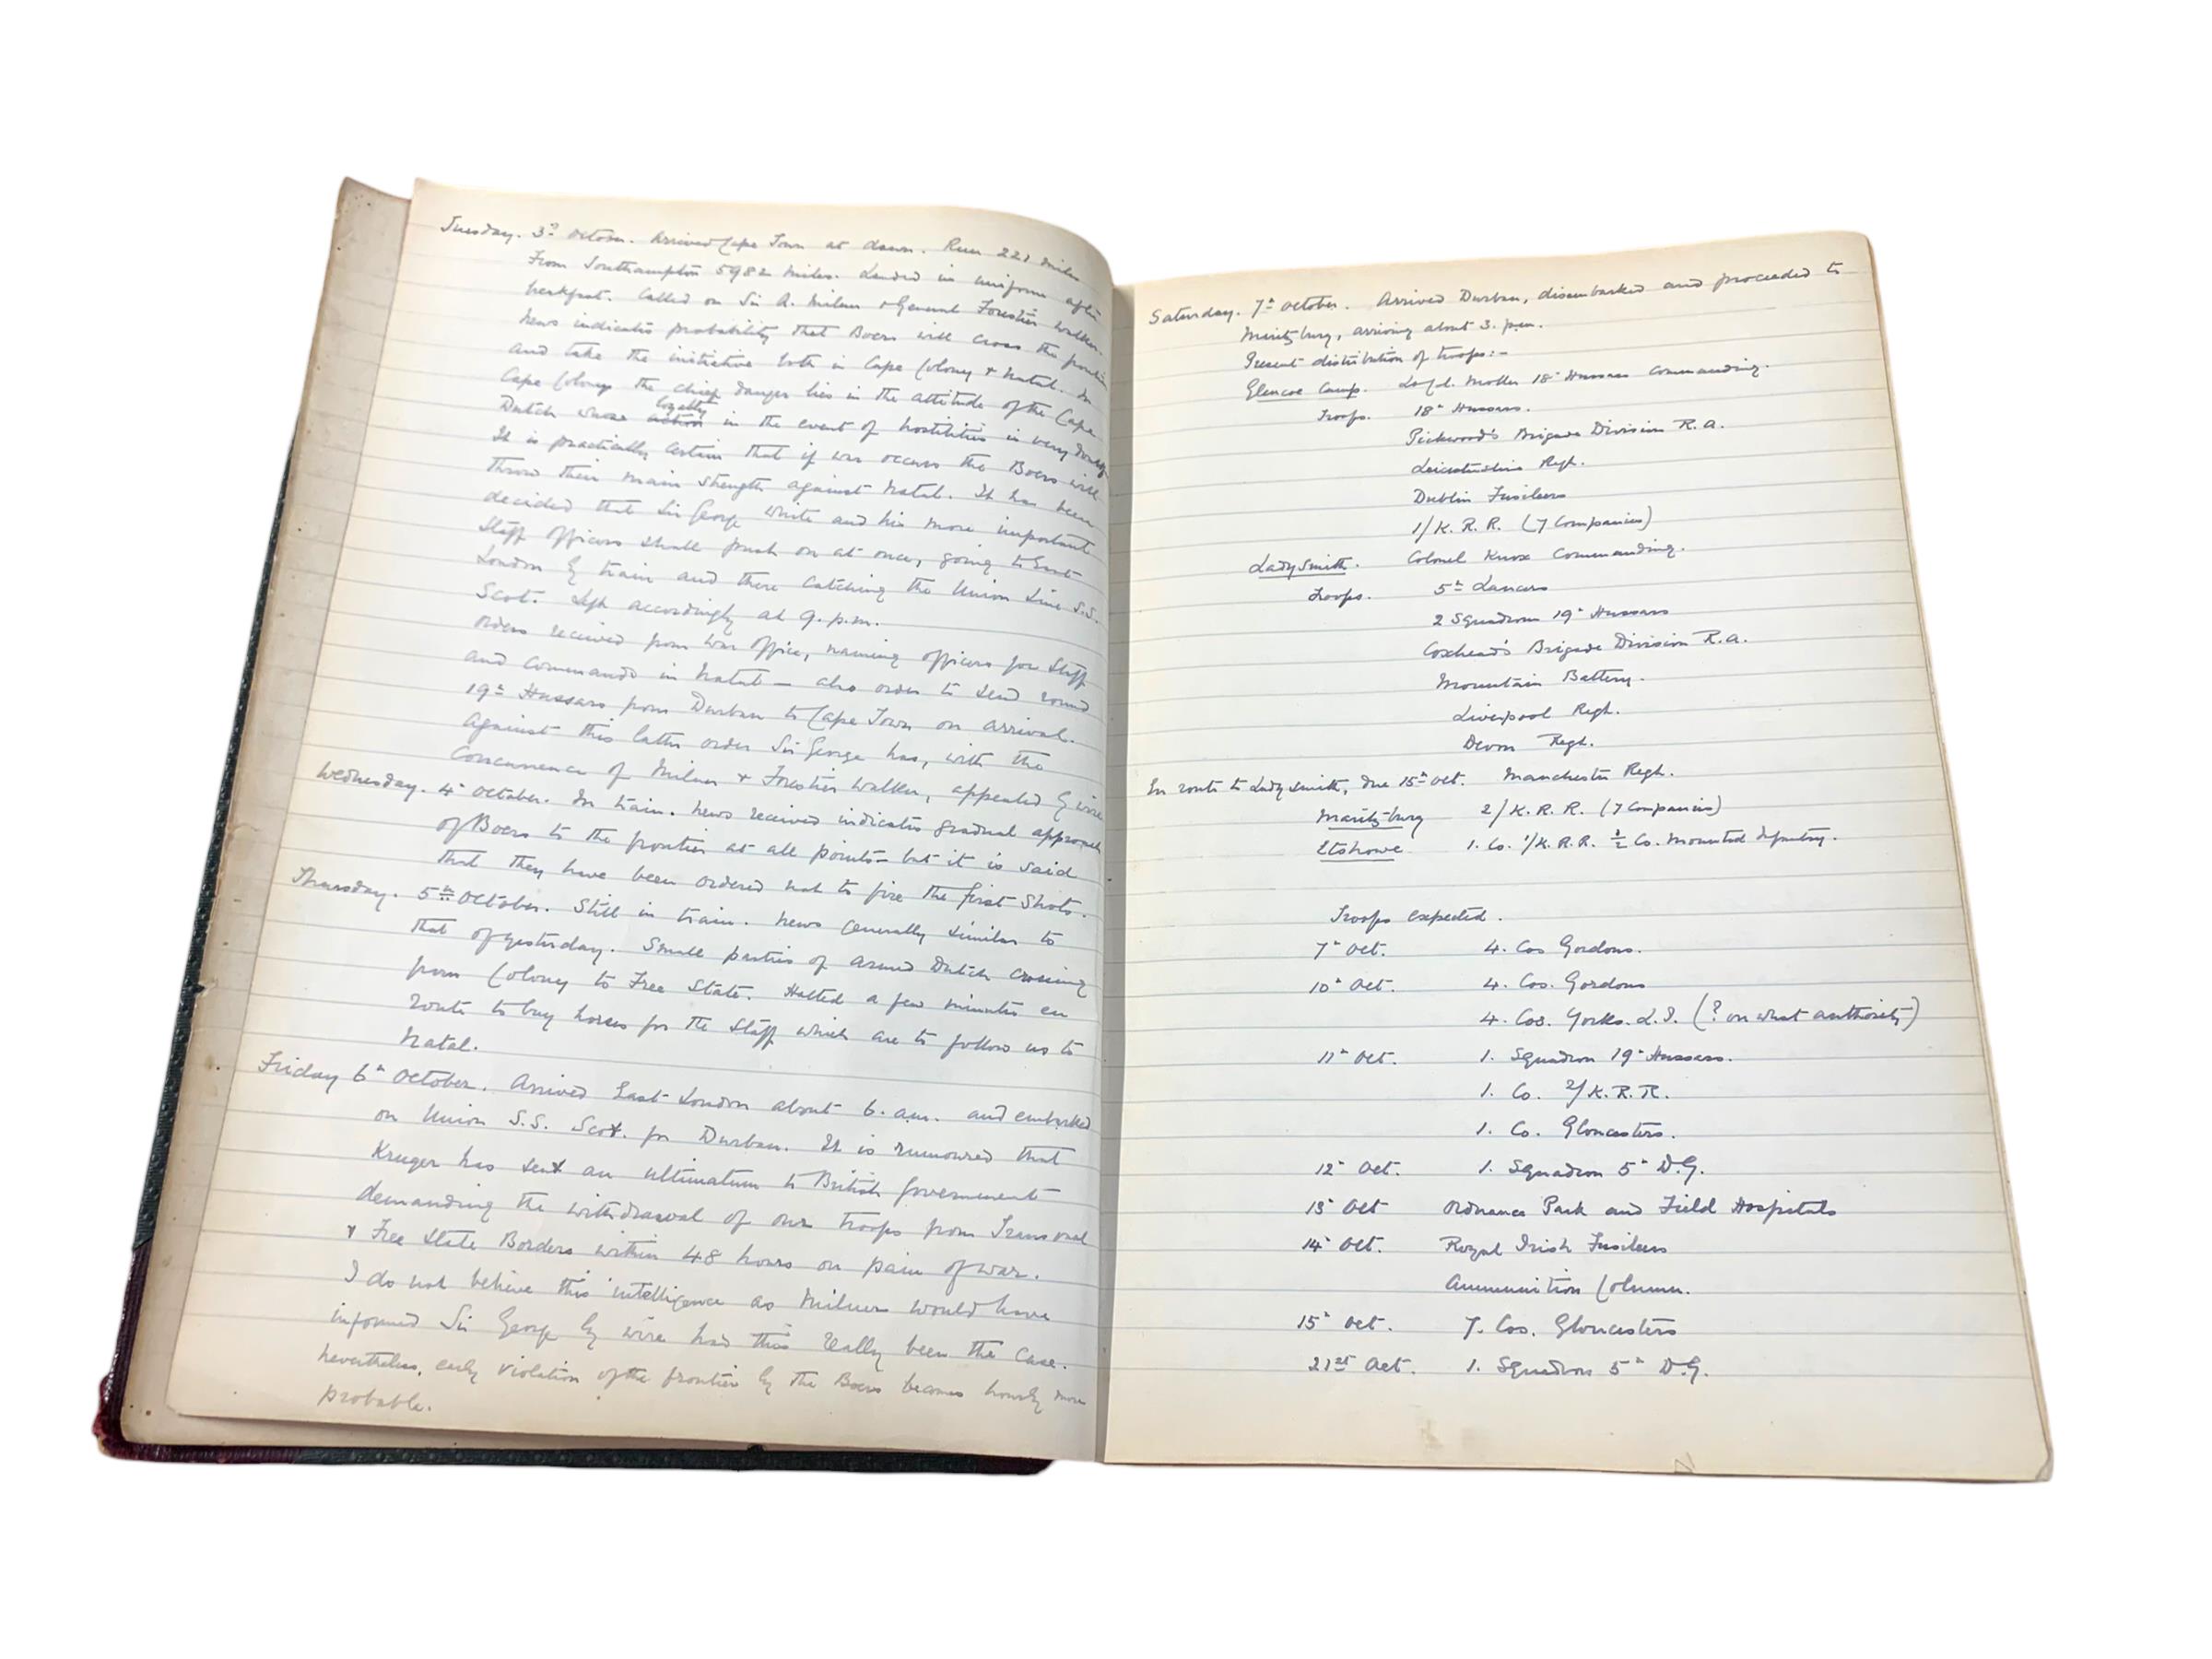 Tuesday. 3rd October. Arrived Cape Town at dawn. Run 221 miles
From Southampton 5982 miles. Landed in uniform after
breakfast. Called on Sir A. Milner & General Forestier Walker.
News indicates probability that Boers will cross the frontier
and take the initiative both in Cape Colony & Natal. In
Cape Colony the chief danger lies in the attitude of the Cape
Dutch whose action loyalty in the event of hostilities is very doubtful
It is practically certain that if war occurs the Boers will
throw their main strength against Natal. It has been
decided that Sir George White and his more important
Staff Officers shall push on at once, going to East
London by train and there catching the Union Line S.S.
Scot. Left accordingly at 9. p.m.
Orders received from War Office, naming officers for Staff
and Commands in Natal — also order to send round
19th Hussars from Durban to Cape Town on arrival.
Against this latter order Sir George has, with the
concurrence of Milner & Forestier Walker, appealed by wire
Wednesday. 4th October. In train. News received indicates gradual approach
of Boers to the frontier at all points – but it is said
that they have been ordered not to fire the first shots.
Thursday. 5th October. Still in train. News generally similar to
that of yesterday. Small parties of armed Dutch crossing
from Colony to Free State. Halted a few minutes en
route to buy horses for the Staff which are to follow us to
Natal.
Friday 6th October. Arrived East London about 6. a.m. and embarked
on Union S.S. Scot. for Durban. It is rumoured that
Kruger has sent an ultimatum to British Government
demanding the withdrawal of our troops from Transvaal
& Free State Borders within 48 hours on pain of war.
I do not believe this intelligence as Milner would have
informed Sir George by wire had this really been the case.
Nevertheless, early violation of the frontier by the Boers becomes hourly more
probable.
Saturday. 7th October. Arrived Durban, disembarked and proceeded to
Maritzburg, arriving about 3. p.m.
Present distribution of troops:–
Glencoe Camp. Lt. Col. Moller 18th Hussars Commanding.
Troops. 18th Hussars.
Pickwood's Brigade Division R.A.
Leicestershire Regt.
Dublin Fusiliers
1/K.R.R. (7 Companies)
Ladysmith. Colonel Knox Commanding.
Troops. 5th Lancers
2 Squadrons 19th Hussars
Coxhead's Brigade Division R.A.
Mountain Battery.
Liverpool Regt.
Devon Regt.
En route to Ladysmith, due 15th Oct. Manchester Regt.
Maritzburg 2/K.R.R. (7 Companies)
Etshowe 1. Co. 1/K.R.R. ½ Co. Mounted Infantry.
Troops expected.
7th Oct. 4. Cos Gordons.
10th Oct. 4. Cos. Gordons
4. Cos. Yorks. L.I. (? on what authority)
11th Oct. 1. Squadron 19th Hussars.
1. Co. 2/K.R.R.
1. Co. Gloucesters.
12th Oct. 1. Squadron 5th D.G.
13th Oct Ordnance Park and Field Hospitals
14th Oct. Royal Irish Fusiliers
Ammunition Column.
15th Oct. 7. Cos. Gloucesters
21st Oct. 1. Squadron 5th D.G.